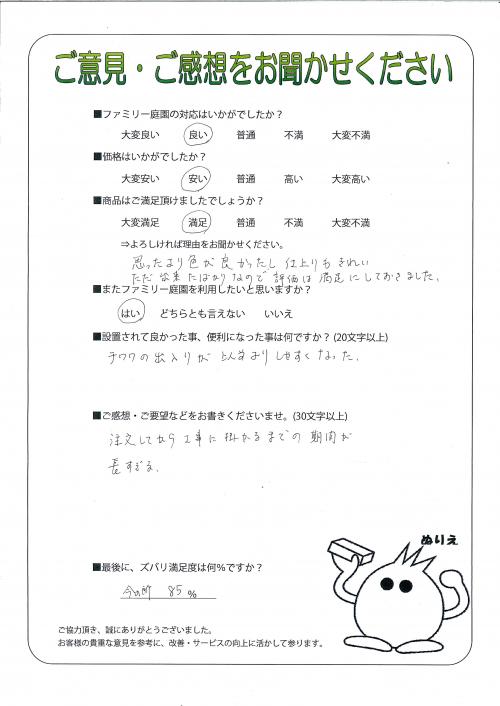 ご意見・ご感想をお聞かせください
■ファミリー庭園の対応はいかがでしたか？
大変良い 良い 普通 不満 大変不満
■価格はいかがでしたか？
大変安い 安い 普通 高い 大変高い
■商品はご満足頂けましたでしょうか？
大変満足 満足 普通 不満 大変不満
⇒よろしければ理由をお聞かせください。
思ったより色が良かったし 仕上りもきれい
ただ出来たばかりなので評価は満足にしておきました。
■またファミリー庭園を利用したいと思いますか？
はい どちらとも言えない いいえ
■設置されて良かった事、便利になった事は何ですか？(20文字以上)
チワワの出入りが しやすくなった。
■ご感想・ご要望などをお書きくださいませ。(30文字以上)
注文してから工事に掛かるまでの期間が
長すぎる。
ぬりえ
■最後に、ズバリ満足度は何％ですか？
今の所 85 %
ご協力頂き、誠にありがとうございました。
お客様の貴重な意見を参考に、改善・サービスの向上に活かして参ります。